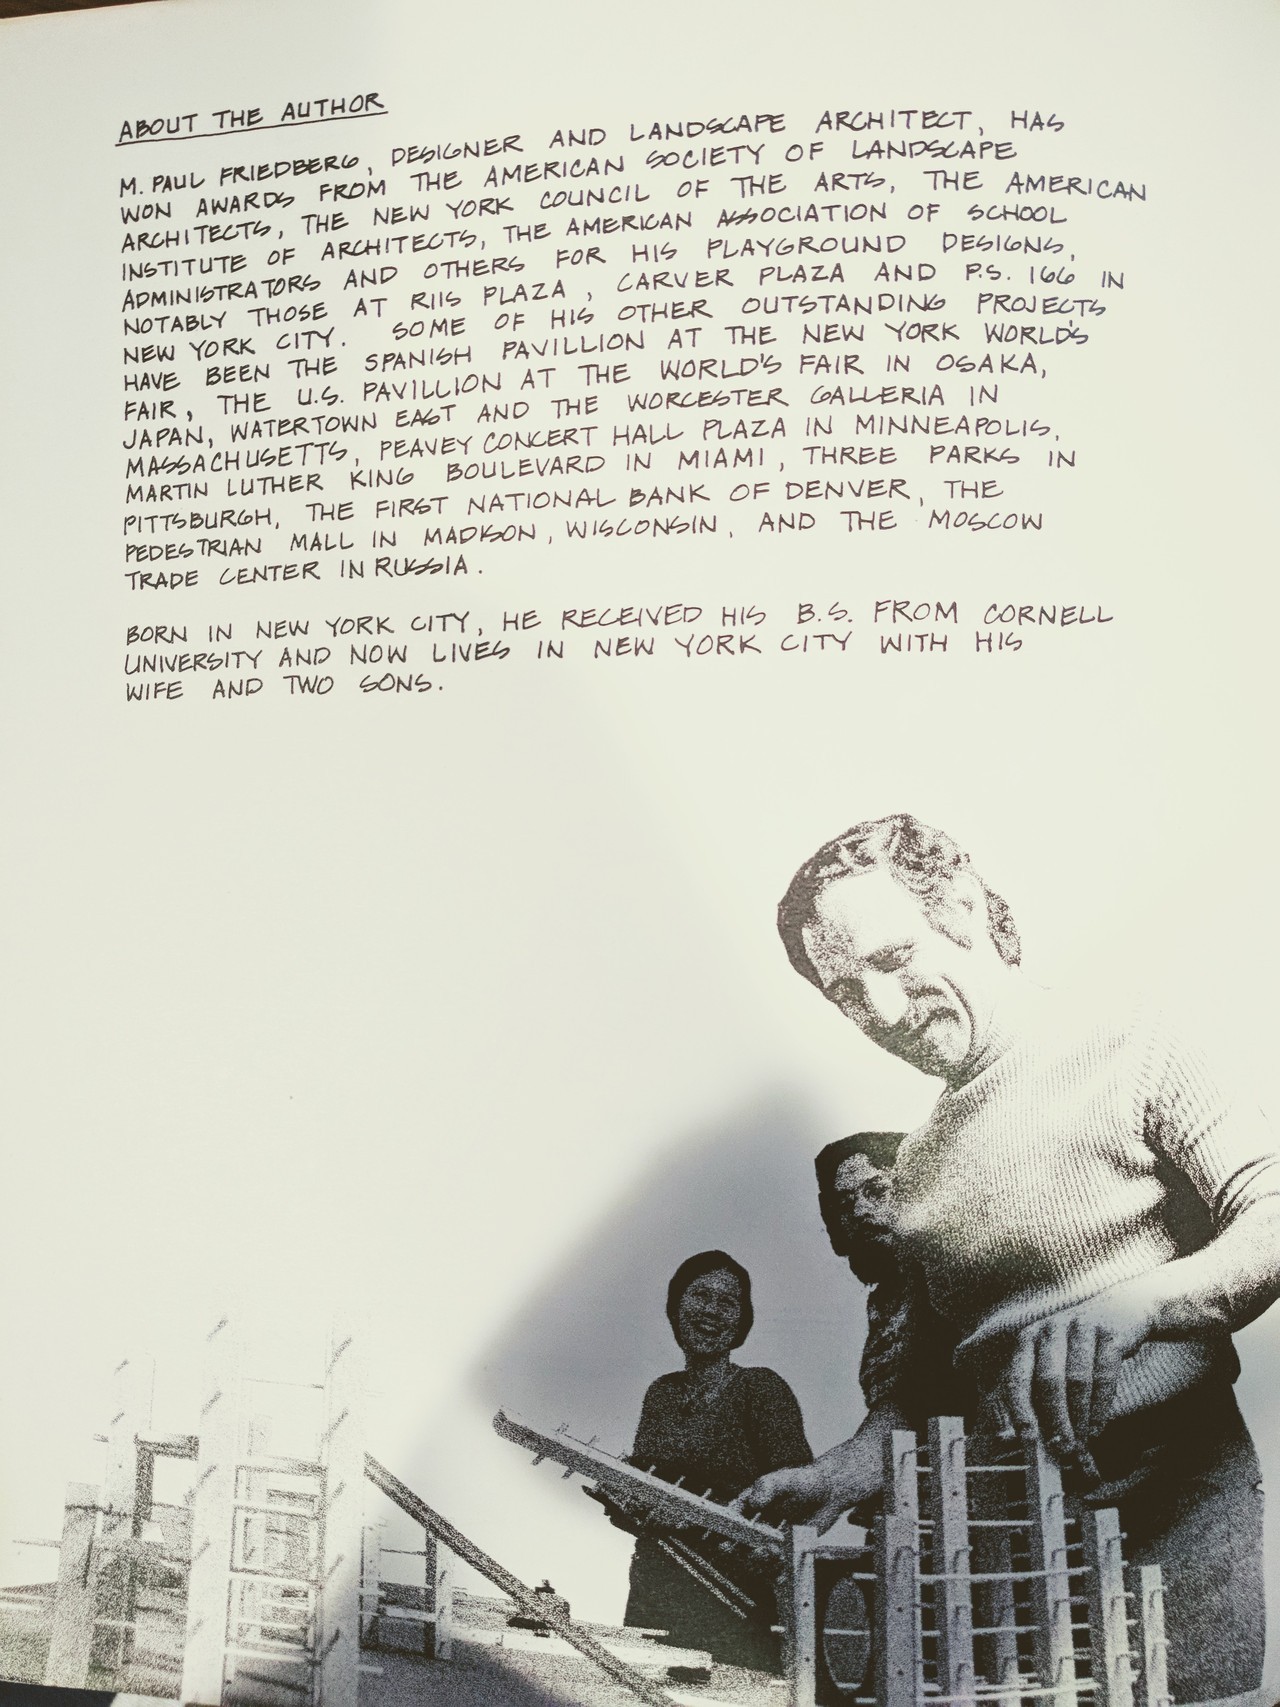 ABOUT THE AUTHOR
M. PAUL FRIEDBERG, DESIGNER AND LANDSCAPE ARCHITECT, HAS
WON AWARDS FROM THE AMERICAN SOCIETY OF LANDSCAPE
ARCHITECTS, THE NEW YORK COUNCIL OF THE ARTS, THE AMERICAN
INSTITUTE OF ARCHITECTS, THE AMERICAN ASSOCIATION OF SCHOOL
ADMINISTRATORS AND OTHERS FOR HIS PLAYGROUND DESIGNS,
NOTABLY THOSE AT RIIS PLAZA, CARVER PLAZA AND P.S. 166 IN
NEW YORK CITY. SOME OF HIS OTHER OUTSTANDING PROJECTS
HAVE BEEN THE SPANISH PAVILLION AT THE NEW YORK WORLD'S
FAIR, THE U.S. PAVILLION AT THE WORLD'S FAIR IN OSAKA,
JAPAN, WATERTOWN EAST AND THE WORCESTER GALLERIA IN
MASSACHUSETTS, PEAVEY CONCERT HALL PLAZA IN MINNEAPOLIS,
MARTIN LUTHER KING BOULEVARD IN MIAMI, THREE PARKS IN
PITTSBURGH, THE FIRST NATIONAL BANK OF DENVER, THE
PEDESTRIAN MALL IN MADISON, WISCONSIN, AND THE MOSCOW
TRADE CENTER IN RUSSIA.
BORN IN NEW YORK CITY, HE RECEIVED HIS B.S. FROM CORNELL
UNIVERSITY AND NOW LIVES IN NEW YORK CITY WITH HIS
WIFE AND TWO SONS.